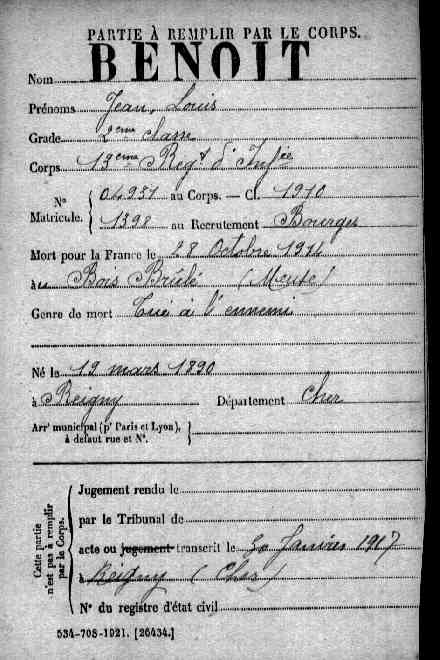 PARTIE À REMPLIR PAR LE CORPS.
BENOIT
Nom
Prénoms Jean, Louis
Grade 2eme Classe
Corps 13eme Regt d'Infie
N° Matricule. { 04931 au Corps. — Cl. 1910
1398 au Recrutement Bourges
Mort pour la France le 28 Octobre 1914
au Bois Brûlé (Meuse)
Genre de mort Tué à l'ennemi
Né le 19 mars 1890
à Reigny Département Cher
Arrt municipal (pr Paris et Lyon),
à défaut rue et N°.
Cette partie n'est pas à remplir par le Corps.
Jugement rendu le
par le Tribunal de
acte ou jugement transcrit le 30 Janvier 1917
à Reigny (Cher)
N° du registre d'état civil
534-708-1921. [26434.]